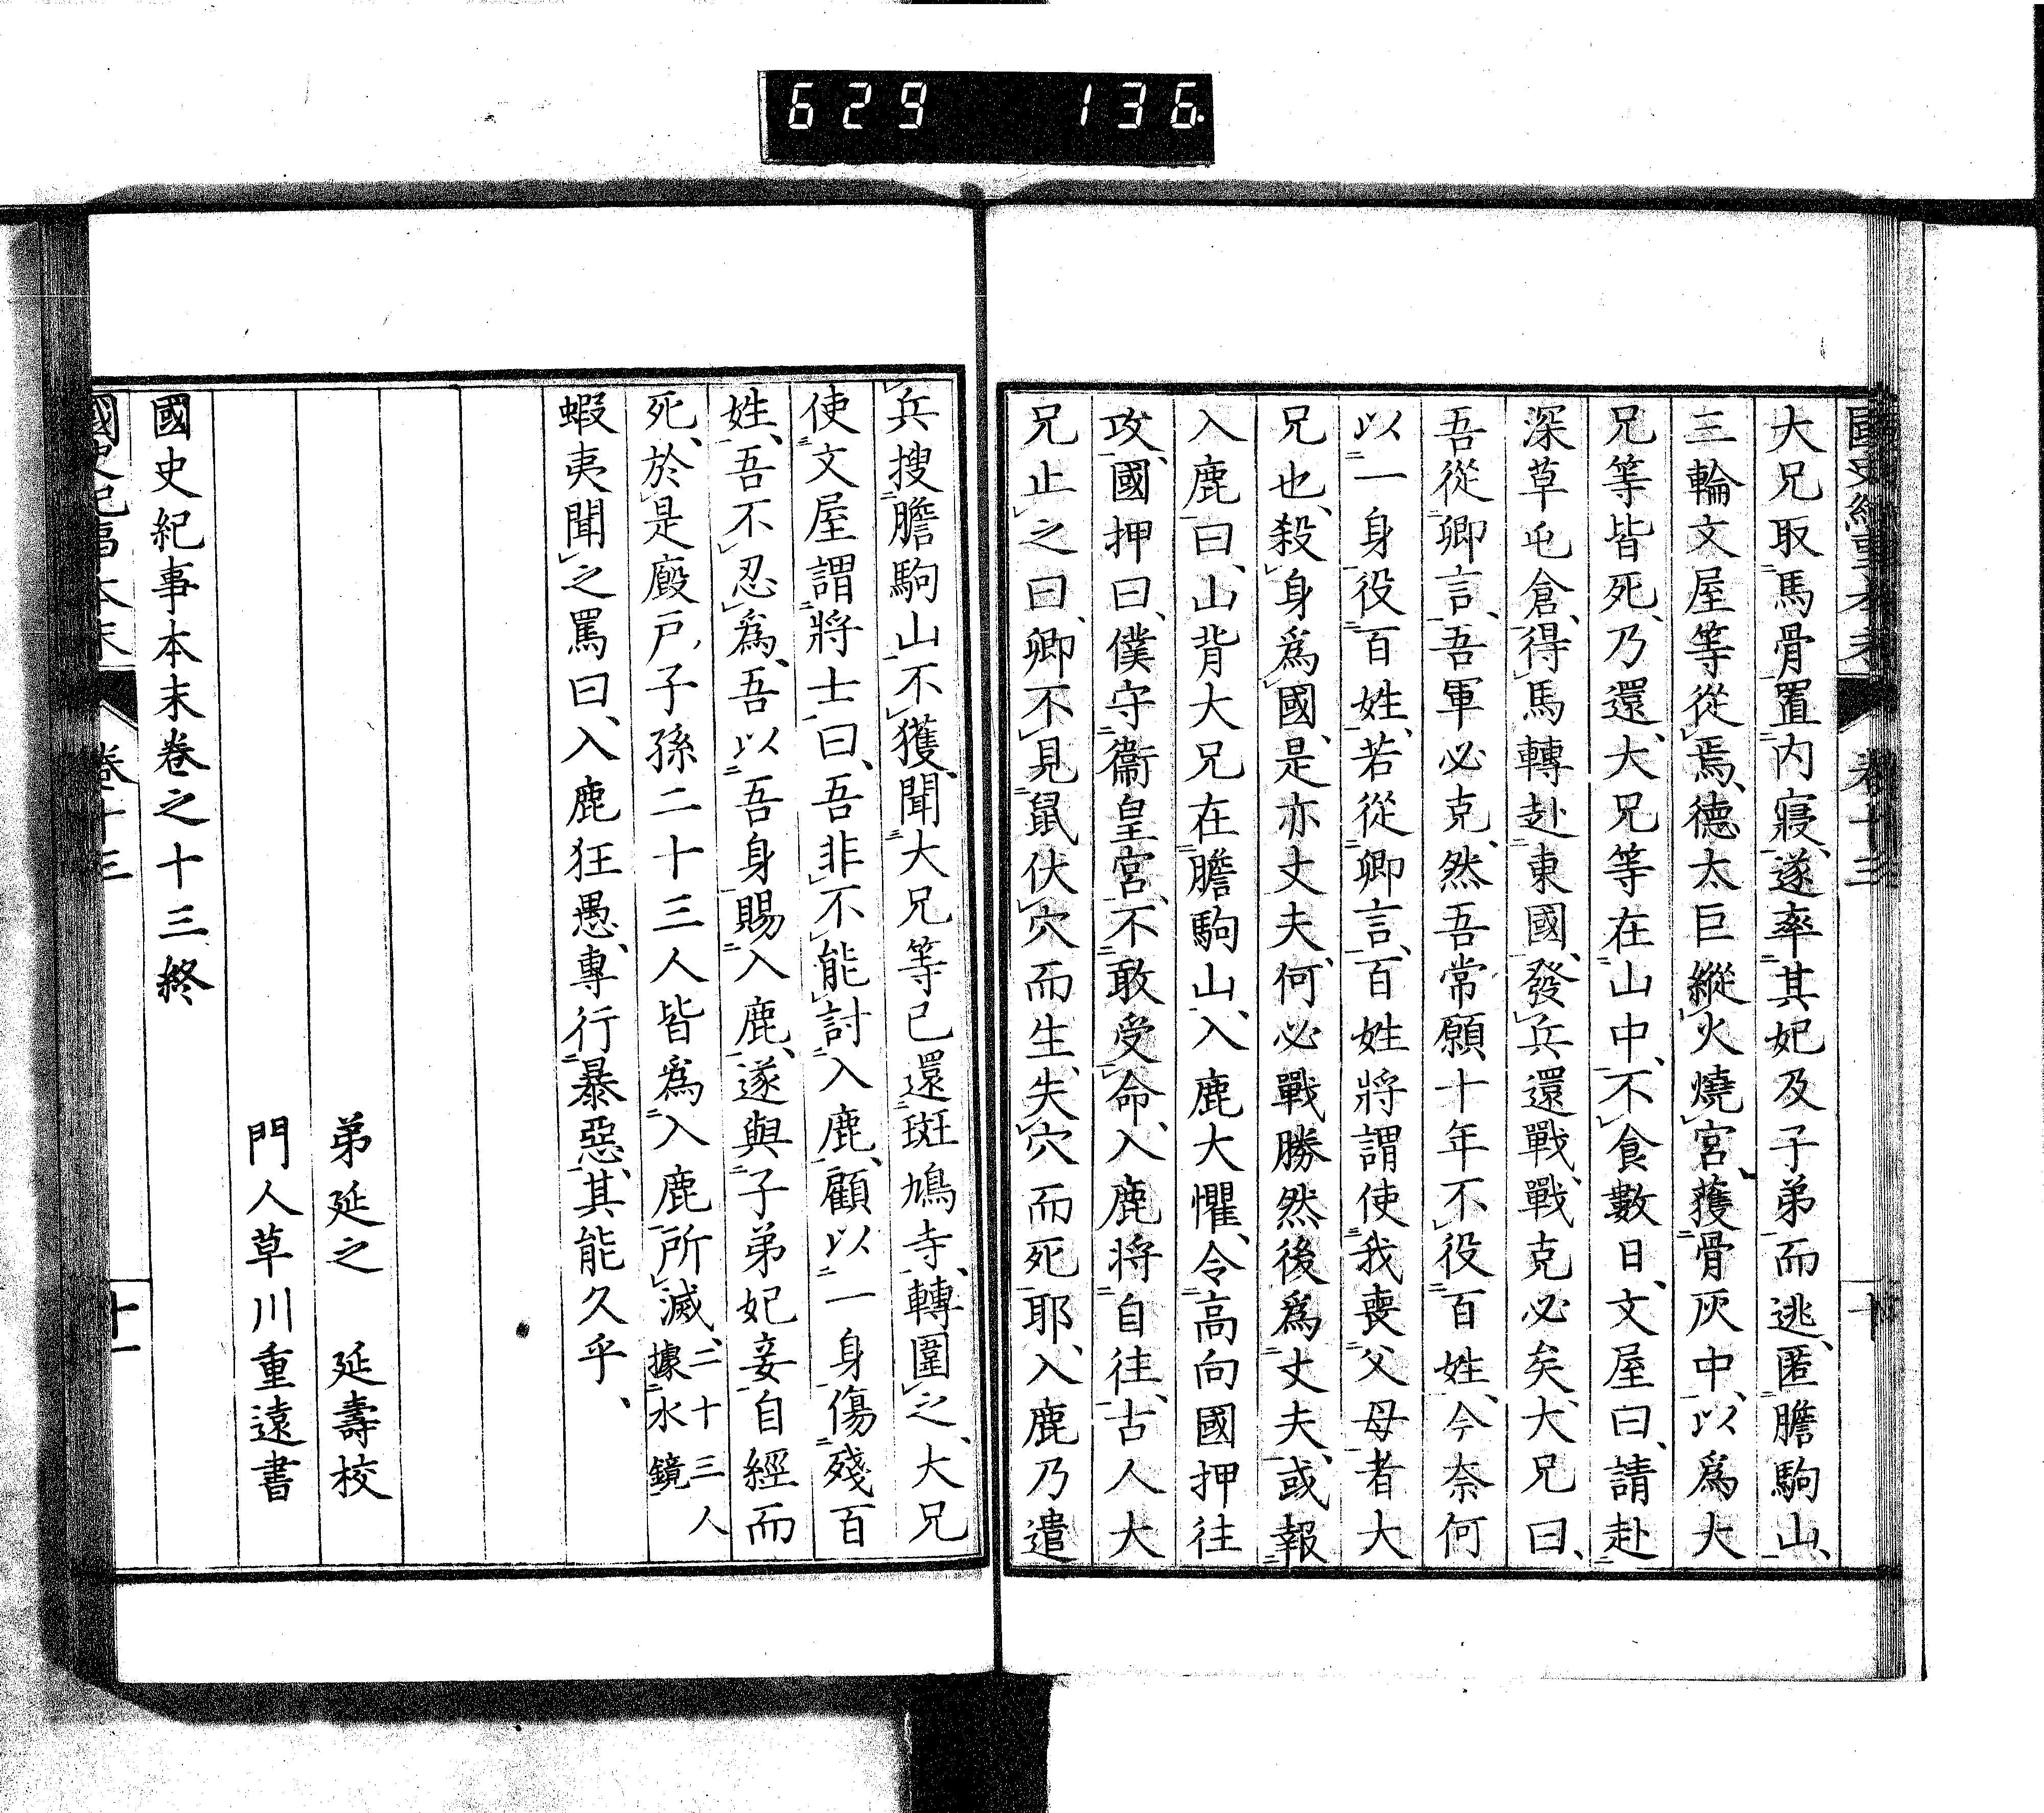 629 136
大兄取馬骨置内寢、遂率其妃及子弟而逃、匿膽駒山、
三輪文屋等從焉、德太巨縱火燒宮、獲骨灰中、以爲大
兄等皆死、乃還、大兄等在山中、不食數日、文屋曰、請赴
深草屯倉、得馬轉赴東國、發兵還戰、戰克必矣、大兄曰、
吾從卿言、吾軍必克、然吾常願十年不役百姓、今奈何
以一身役百姓、若從卿言、百姓將謂使我喪父母者大
兄也、殺身爲國、是亦丈夫、何必戰勝然後爲丈夫、或報
入鹿曰、山背大兄在膽駒山、入鹿大懼、令高向國押往
攻、國押曰、僕守衞皇宮、不敢受命、入鹿将自往、古人大
兄止之曰、卿不見鼠伏穴而生、失穴而死耶、入鹿乃遣
兵搜膽駒山不獲、聞大兄等已還斑鳩寺、轉圍之、大兄
使文屋謂將士曰、吾非不能討入鹿、顧以一身傷殘百
姓、吾不忍爲、吾以吾身賜入鹿、遂與子弟妃妾自經而
死、於是廄戸子孫二十三人皆爲入鹿所滅、二十三人據水鏡
蝦夷聞之罵曰、入鹿狂愚、專行暴惡、其能久乎、
弟延之 延壽校
門人草川重遠書
國史紀事本末卷之十三終
國史紀事本末 卷十三 十一